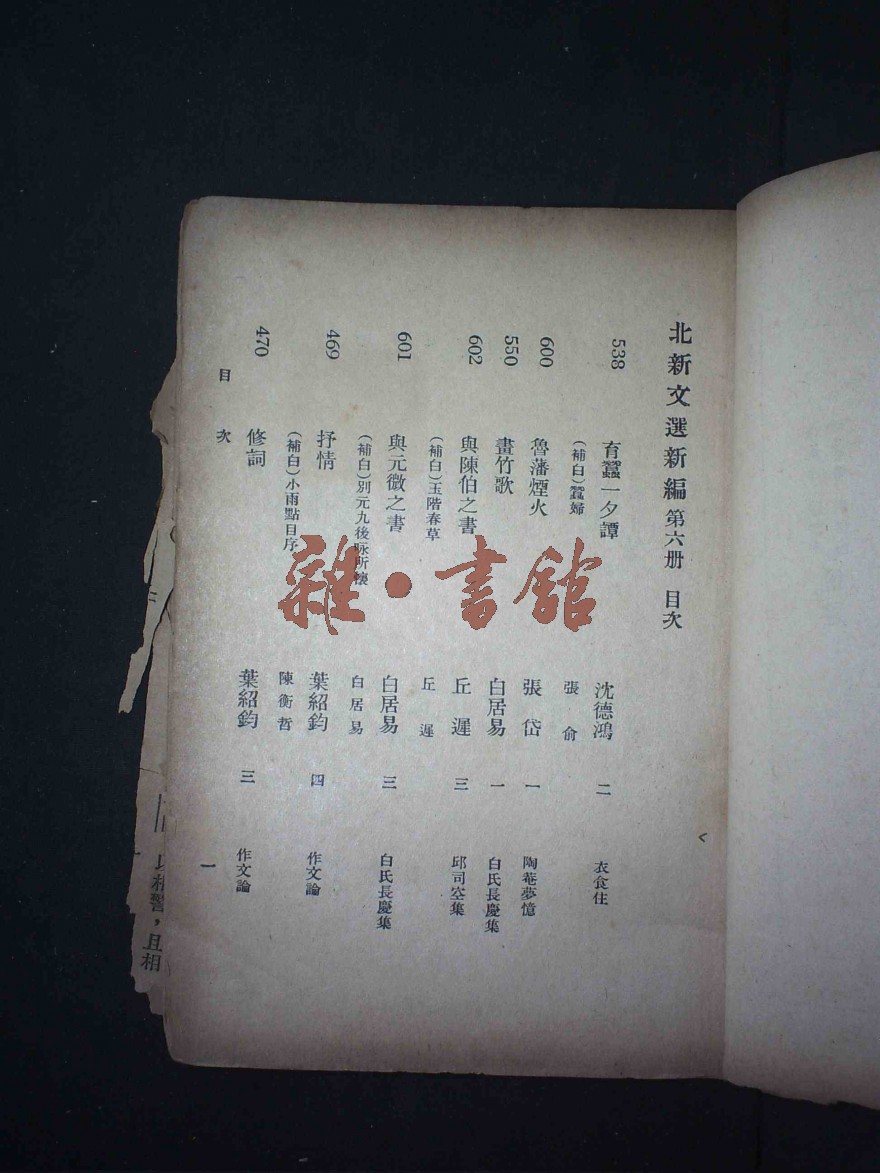 北新文選新編 第六册 目次
538 育蠶一夕譚 沈德鴻 二 衣食住
(補白)蠶婦 張俞
600 魯藩煙火 張岱 一 陶菴夢憶
550 畫竹歌 白居易 一 白氏長慶集
602 與陳伯之書 丘遲 三 邱司空集
(補白)玉階春草 丘遲
601 與元微之書 白居易 三 白氏長慶集
(補白)別元九後咏所懷 白居易
469 抒情 葉紹鈞 四 作文論
(補白)小雨點自序 陳衡哲
470 修詞 葉紹鈞 三 作文論
目次 一
以相警，且相
雜·書館